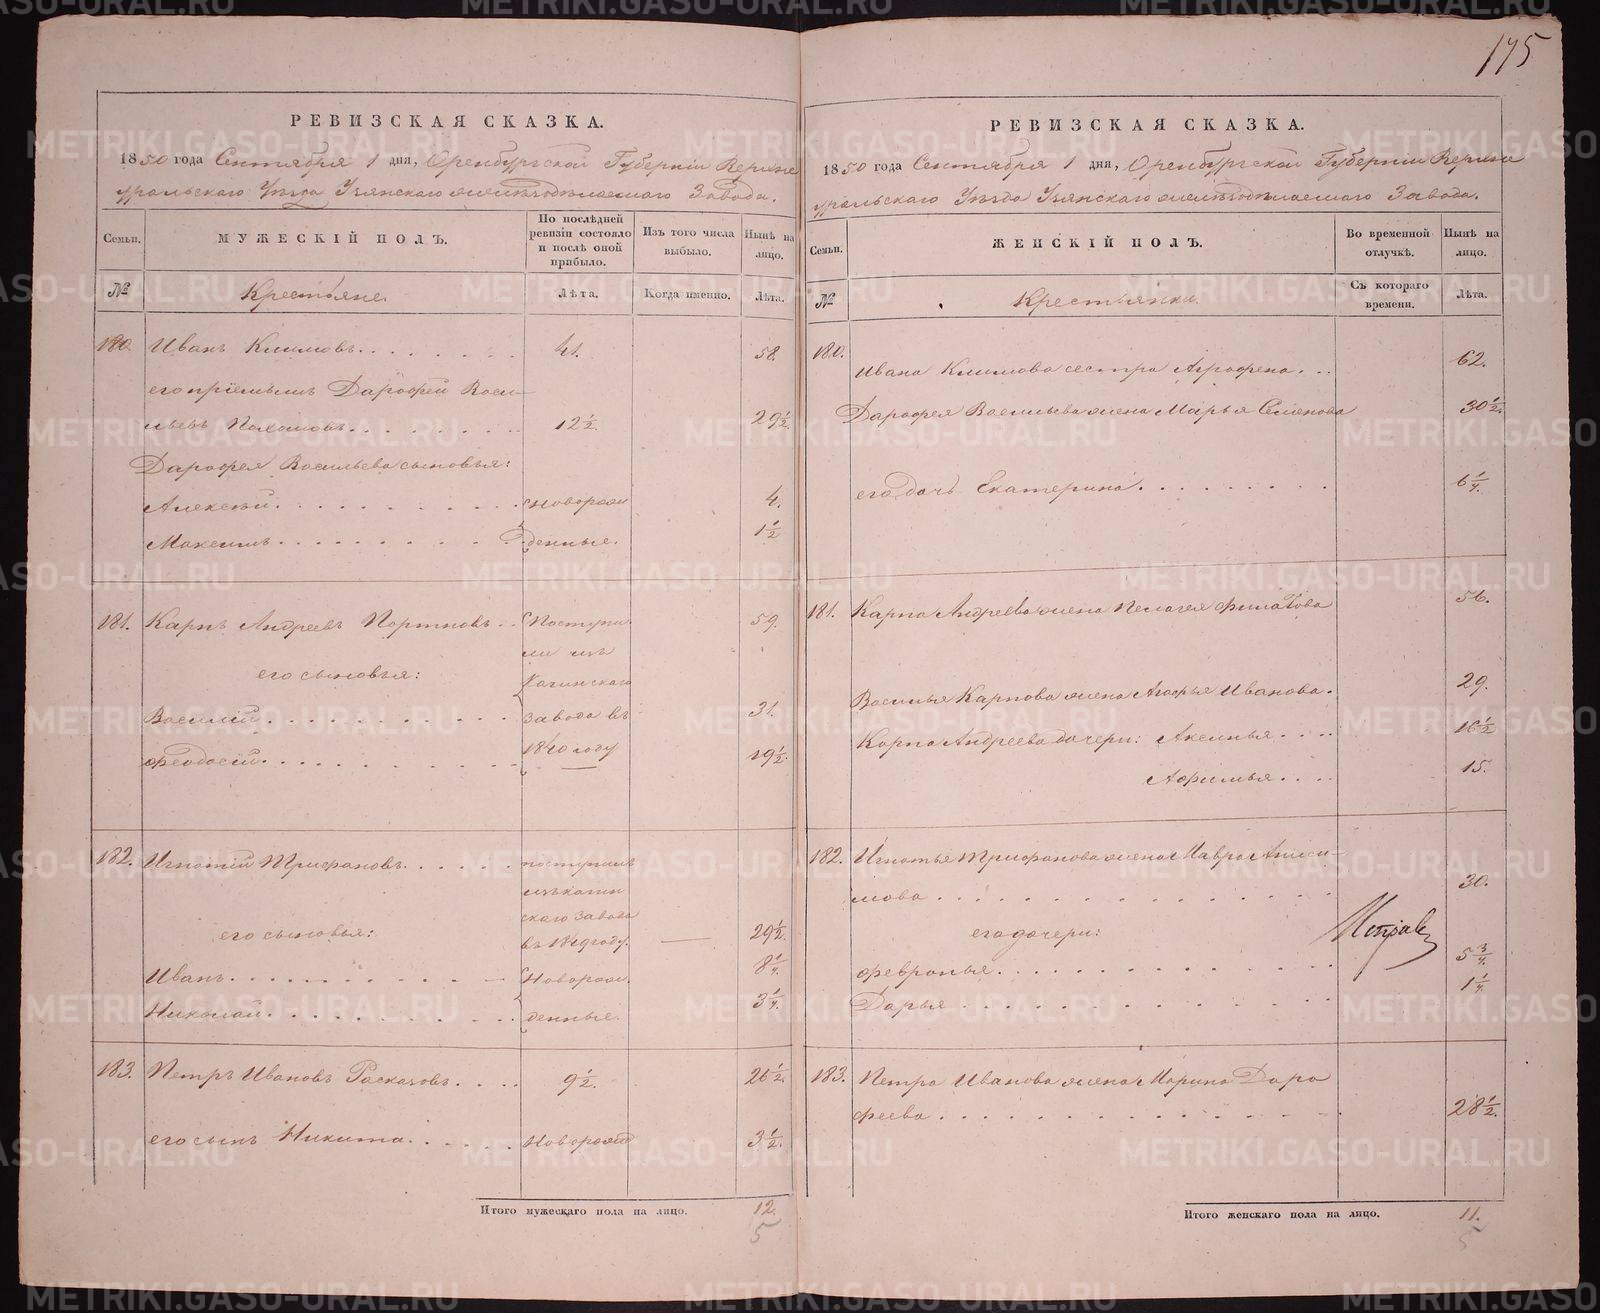 175
РЕВИЗСКАЯ СКАЗКА.
1850 года Сентября 1 дня, Оренбургской Губерніи Верхне
уральскаго Уѣзда Узянскаго желѣзодѣлаемаго Завода.
Семьи.
МУЖЕСКІЙ ПОЛЪ.
По послѣдней
ревизіи состояло
и послѣ оной
прибыло.
Изъ того числа
выбыло.
Нынѣ на
лицо.
№
Крестьяне.
Лѣта.
Когда именно.
Лѣта.
180. Иванъ Климовъ. 41. 58.
его пріемышъ Дарофей Васи-
льевъ Пахомовъ. 12½. 29½.
Дарофея Васильева сыновья:
Алексѣй. Новорож 4.
Максимъ. денные. 1½
181. Карпъ Андреевъ Портновъ. Поступи 59.
ли изъ
его сыновья: Кагинскаго
Василій. завода въ 31.
Феодосій. 1840 году 19½.
182. Игнатій Трифановъ. поступилъ
изъ Кагин
скаго завода
его сыновья: въ году. 29½.
Иванъ. Новорож 8¼.
Николай. денные. 3¼.
183. Петръ Ивановъ Раскаговъ. 9½. 26½.
его сынъ Никита. Новорожд 3½.
Итого мужескаго пола на лицо. 12.
5
РЕВИЗСКАЯ СКАЗКА.
1850 года Сентября 1 дня, Оренбургской Губерніи Верхне
уральскаго Уѣзда Узянскаго желѣзодѣлаемаго Завода.
Семьи.
ЖЕНСКІЙ ПОЛЪ.
Во временной
отлучкѣ.
Нынѣ на
лицо.
№
Крестьянки.
Съ котораго
времени.
Лѣта.
180. Ивана Климова сестра Аграфена. 62.
Дарофея Васильева жена Марья Семенова 30½.
его дочь Екатерина. 6¼.
181. Карпа Андреева жена Пелагея Филатова 56.
Василья Карпова жена Агафья Иванова. 29.
Карпа Андреева дочери: Акелинья. 16½
Афимья. 15.
182. Игнатья Трифанова жена Мавра Аниси-
мова. 30.
его дочери:
Февронья. 5¾.
Дарья. 1¼.
183. Петра Иванова жена Марина Даро
феева. 28½.
Итого женскаго пола на лицо. 11.
5
METRIKI.GASO-URAL.RU